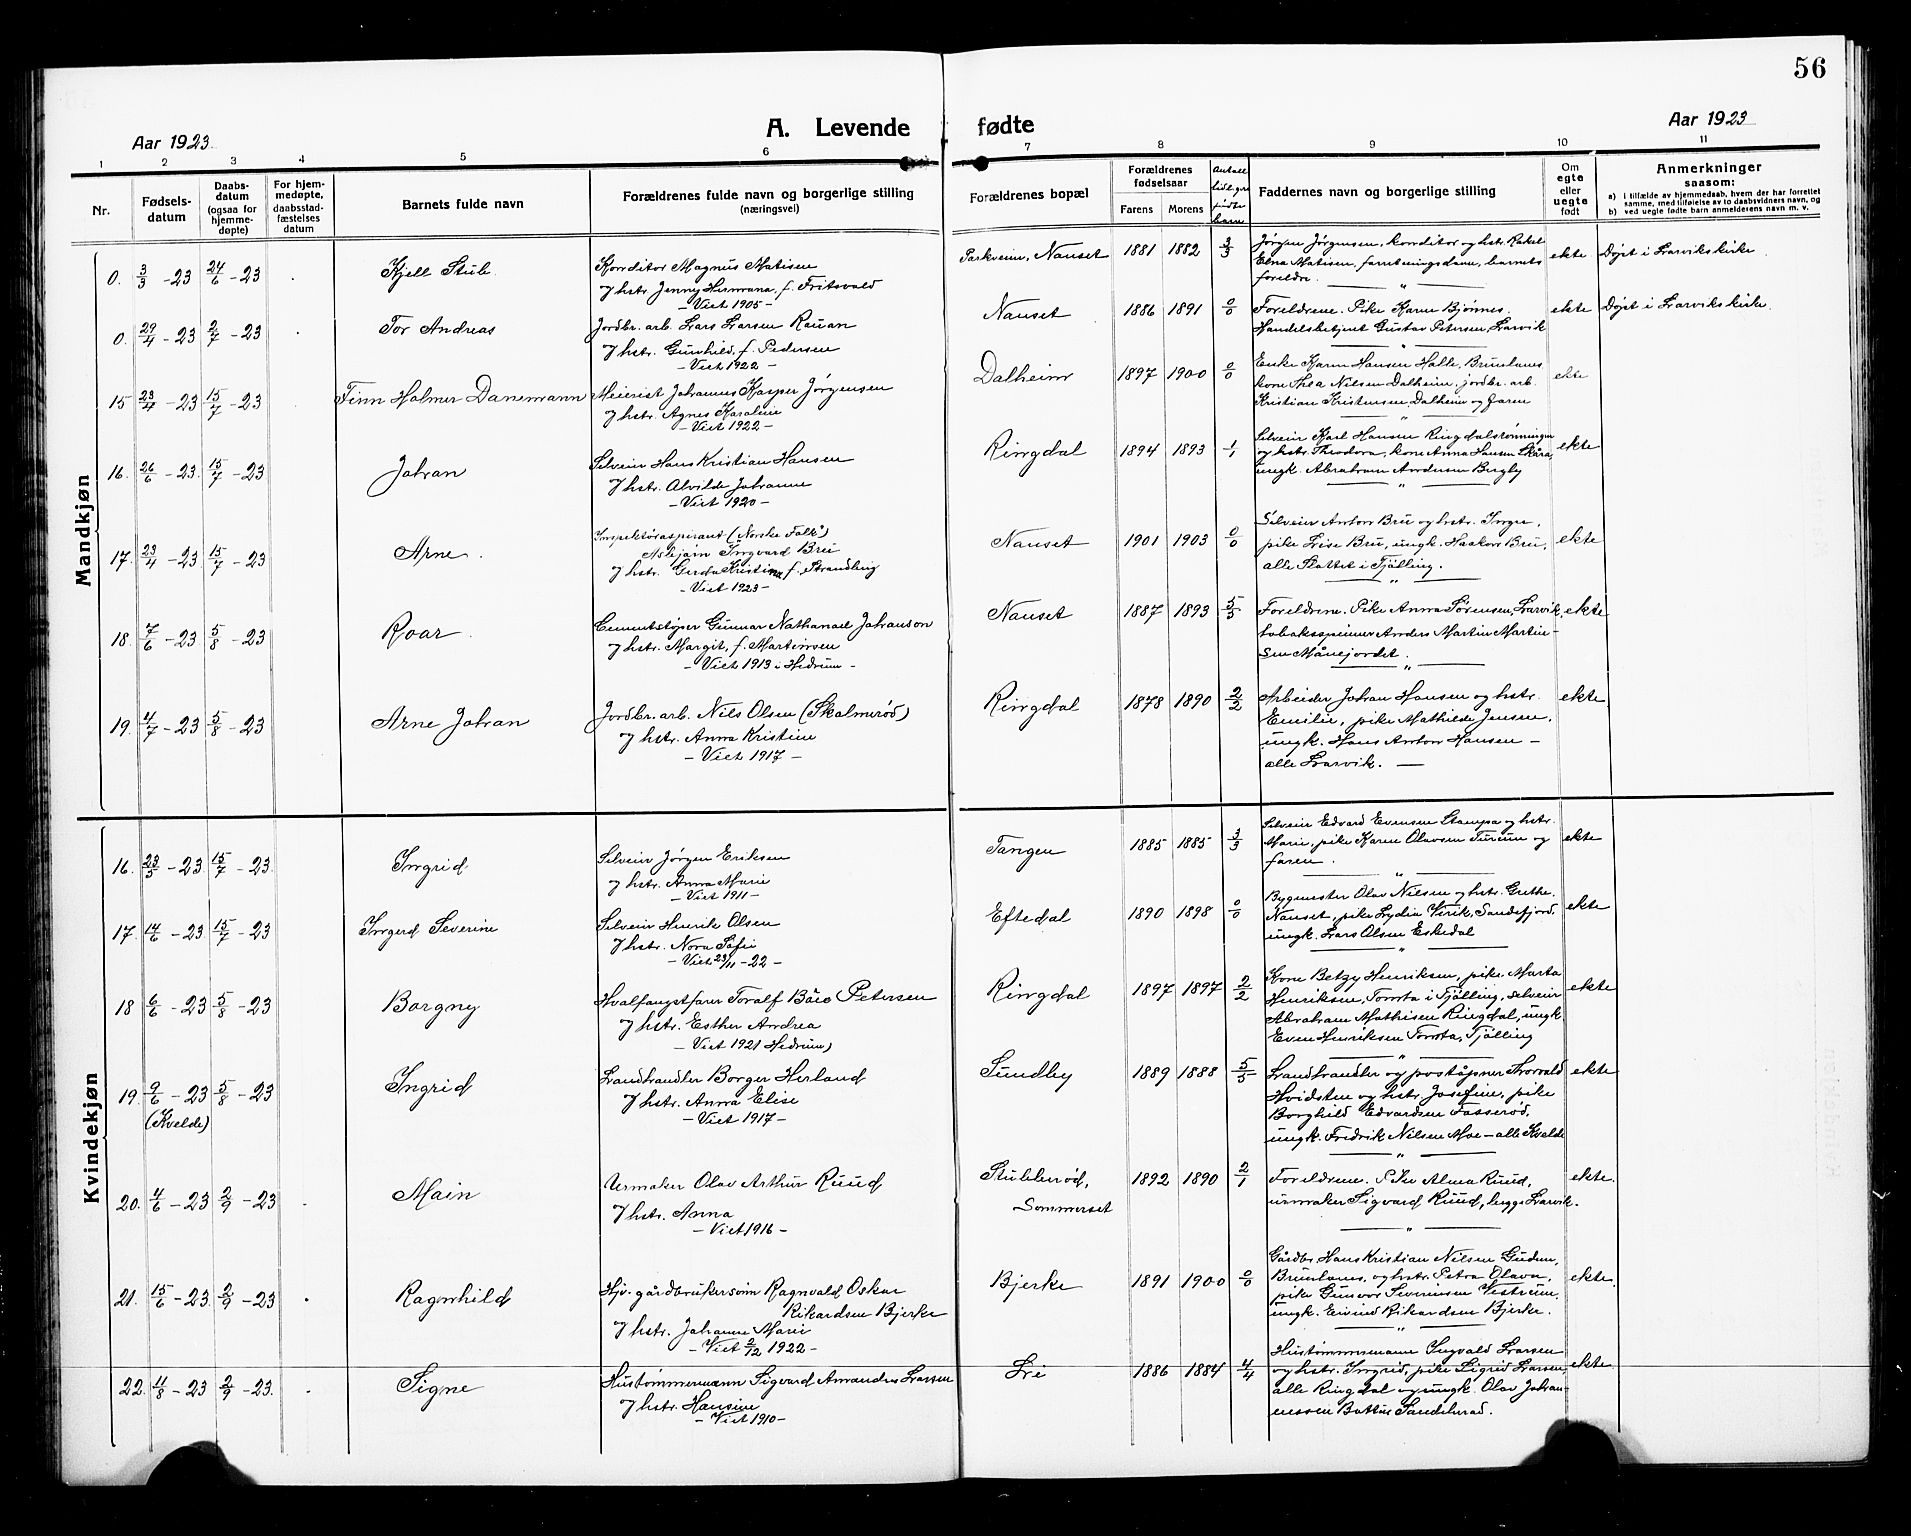 56
Aar 1923.
A. Levende fødte
Aar 1923
1 2 3 4 5 6 7 8 9 10 11
Nr.
Fødsels-datum
Daabs-datum (ogsaa for hjemme-døpte)
For hjem-medøpte, daabsstad-fæstelses datum
Barnets fulde navn
Forældrenes fulde navn og borgerlige stilling
(næringsvei)
Forældrenes bopæl
Forældrenes fødselsaar
Farens Morens
Faddernes navn og borgerlige stilling
Om egte eller uegte født
Anmerkninger
saasom:
a) i tilfælde av hjemmedaab, hvem der har forrettet samme, med tilføielse av to daabsvidners navn, og
b) ved uegte fødte barn anmelderens navn m. v.
Mandkjøn
0. 3/3 - 23 24/6 - 23 Kjell Stub
Konditor Magnus Matisen
og hstr. Jenny Hermana, f. Fritsvold
- Viet 1905 -
Parkveien, Nanset 1881 1882 3/3
Jørgen Jørgensen, konditor og hstr. Rakel
Elna Matisen, forretningsdame, barnets
foreldre.
ekte Døpt i Larvikskirke
0. 29/4 - 23 2/7 - 23 Tor Andreas
Jordbr. arb. Lars Larsen Rauan
og hstr. Gunhild, f. Pedersen
- Viet 1922 -
Nanset 1886 1891 0/0
Foreldrene. Pike Karen Bjønnes.
Handelsbetjent Gustav Petersen, Larvik
ekte Døpt i Larvikskirke.
15 23/4 - 23 15/7 - 23 Finn Holmer Danemann
Meierist Johannes Kasper Jørgensen
og hstr. Agnes Karoline
- Viet 1922 -
Dalheim 1897 1900 0/0
Enke Karen Hansen Halle, Brunlanes
kone Thea Nilsen Dalheim, jordbr. arb.
Kristian Kristensen, Dalheim og faren
ekte
16. 26/6 - 23 15/7 - 23 Johan
Selveier Hans Kristian Hansen
og hstr. Alvilde Johanne
- Viet 1920 -
Ringdal 1894 1893 1/1
Selveier Karl Hansen Ringdalsrønningen
og hstr. Theodora, kone Anna Hansen Skåra,
ungk. Abraham Andersen Bugby
ekte
17. 23/4 - 23 15/7 - 23 Arne
Inspektøraspirant (Norske Folk)
Asbjørn Ingvard Bru
og hstr. Gerda Kristine f. Strandberg
- Viet 1923 -
Nanset 1901 1903 0/0
Selveier Anton Bru og hstr. Inga,
pike Lise Bru, ungk. Haakon Bru,
alle Slottet i Tjølling.
ekte
18. 7/6 - 23 5/8 - 23 Roar
Cementstøper Gunnar Nathanael Johanson
og hstr. Margit, f. Martinsen
- Viet 1913 i Hedrum -
Nanset 1887 1893 5/5
Foreldrene. Pike Anna Sørensen, Larvik,
tobaksspinner Anders Martin Martin-
sen Månejordet.
ekte
19. 4/7 - 23 5/8 - 23 Arne Johan
Jordbr. arb. Nils Olsen (Skalmerød)
og hstr. Anna Kristine
- Viet 1917 -
Ringdal 1878 1890 2/2
Arbeider Johan Hansen og hstr.
Emilie, pike Mathilde Jensen,
ungk. Hans Anton Hansen -
alle Larvik. -
ekte
Kvindekjøn
16. 23/5 - 23 15/7 - 23 Ingrid
Selveier Jørgen Eriksen
og hstr. Anna Marie
- Viet 1911 -
Tangen 1885 1885 3/3
Selveier Edvard Evensen Stampa og hstr.
Marie, pike Karen Olavsen Tureun og
faren.
ekte
17. 14/6 - 23 15/7 - 23 Ingerd Severine
Selveier Henrik Olsen
og hstr. Nora Sofie
- Viet 23/11 - 22 -
Eftedal 1890 1898 0/0
Bygmester Olav Nilsen og hstr. Grethe
Nanset, pike Lydia Virik, Sandefjord,
ungk. Lars Olsen Eskedal
ekte
18 6/6 - 23 5/8 - 23 Borgny
Hvalfangstfarer Toralf Båio Petersen
og hstr. Esther Andrea
- Viet 1921 Hedrum)
Ringdal 1897 1897 2/2
Kone Betzy Henriksen, pike Marta
Henriksen, Tomta i Tjølling, selveier
Abraham Mathisen Ringdal, ungk.
Even Henriksen Tomta, Tjølling
ekte
19. 9/6 - 23 5/8 - 23 Ingrid
(Kvelde)
Landhandler Borger Herland
og hstr. Anna Elise
- Viet 1917 -
Sundby 1889 1888 5/5
Landhandler og poståpner Torvald
Hvidsten og hstr. Josefine, pike
Borghild Edvardsen Fasserød,
ungk. Fredrik Nilsen Moe - alle Kvelde
ekte
20. 4/6 - 23 2/9 - 23 Main
Urmaker Olav Arthur Ruud
og hstr. Anna
- Viet 1916 -
Stubberød,
Sommerset 1892 1890 2/1
Foreldrene. Pike Alma Ruud,
urmaker Sigvard Ruud, begge Larvik.
ekte.
21. 15/6 - 23. 2/9 - 23 Ragnhild
Hjv. gårdbrukersønn Ragnvald Oskar
Rikardsen Bjerke
og hstr. Johanne Marie
- Viet 2/12 1922 -
Bjerke 1891 1900 0/0
Gårdbr. Hans Kristian Nilsen Guden,
Brunlanes, og hstr. Petra Olava,
pike Gunvor Severinsen Vestrum,
ungk. Eivind Rikardsen Bjerke.
ekte.
22. 11/8 - 23 2/9 - 23. Signe
Hustømmermann Sigvard Amandus Larsen
og hstr. Hansine
- Viet 1910 -
Lie 1886 1884 4/4
Hustømmermann Ingvald Larsen
og hstr. Ingrid, pike Sigrid Larsen,
alle Ringdal og ungk. Olav Johan-
nessen Sandelunad.
ekte.